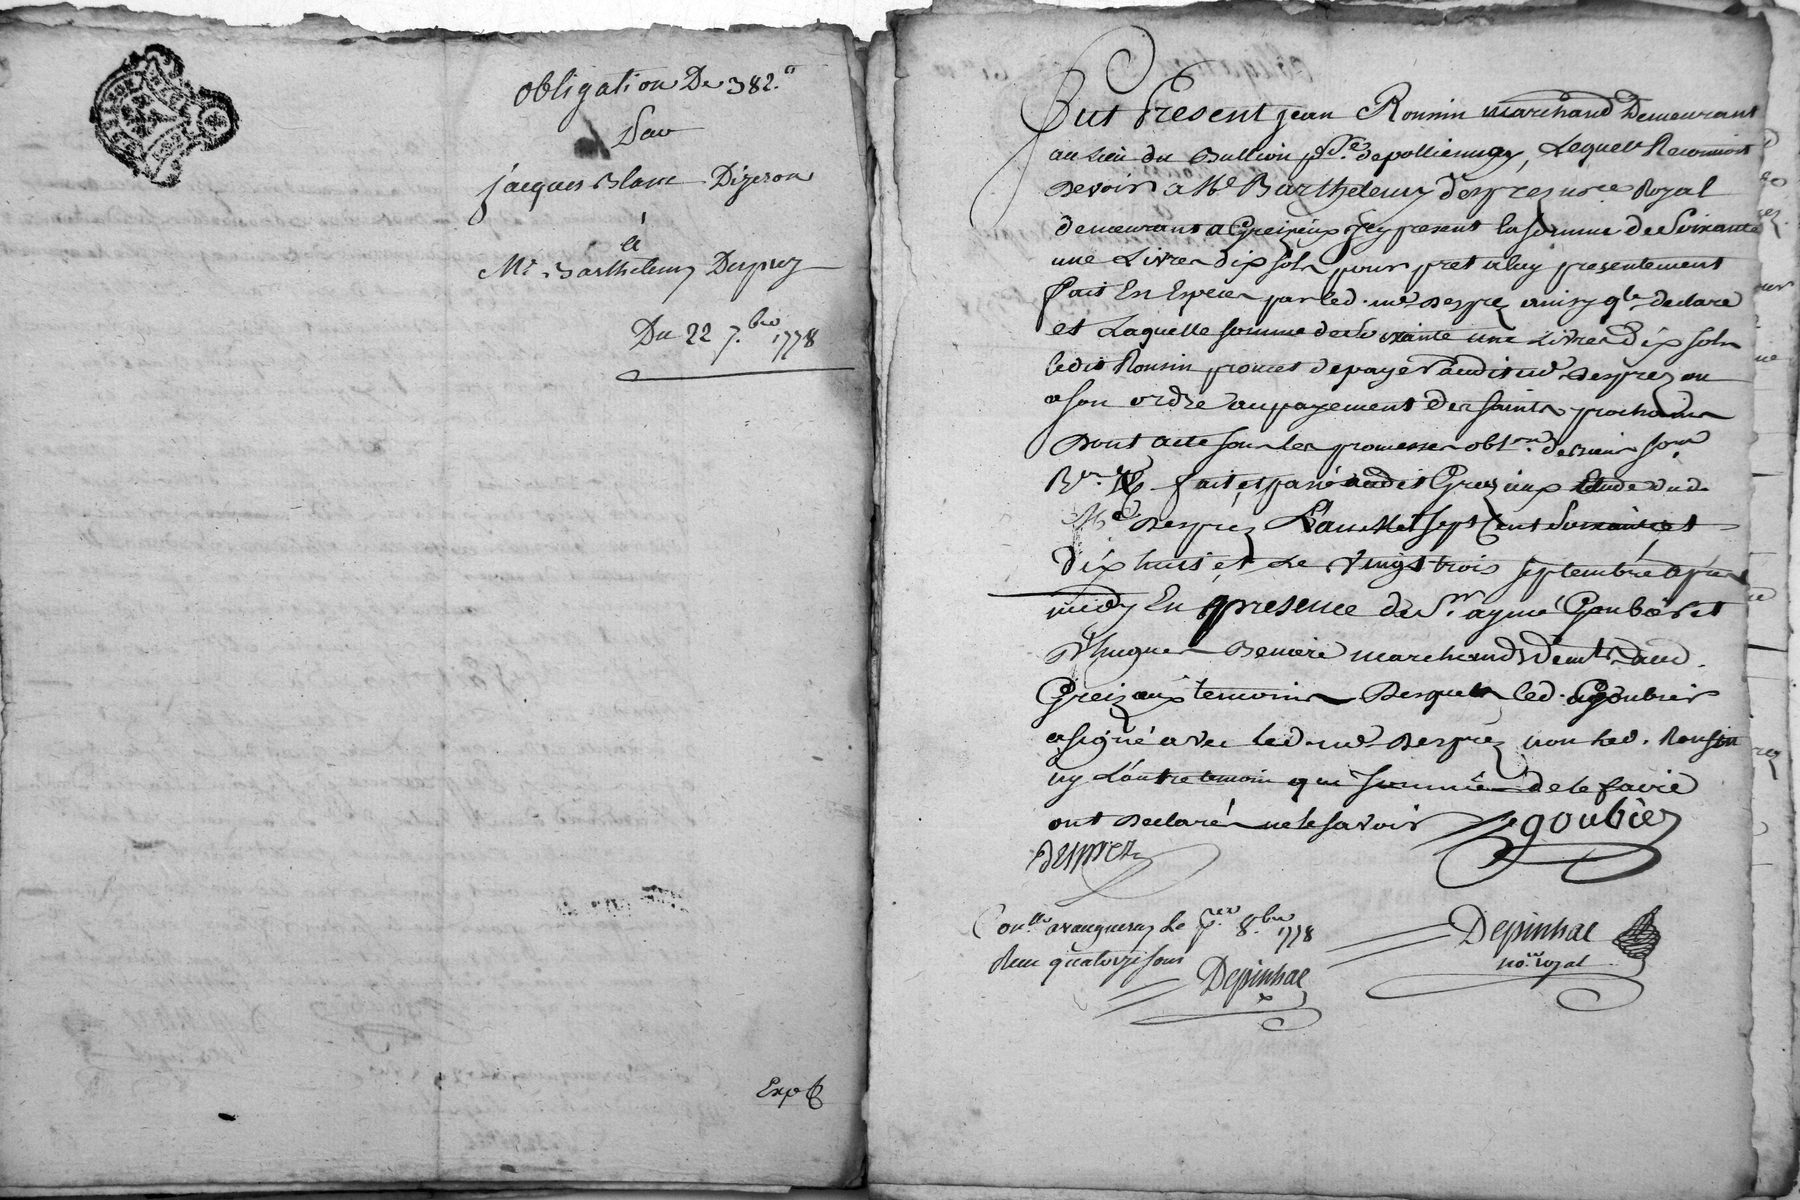 obligation De 382.ᵗᵗ
Par
jacques Blanc Dizeron
à
Mᵉ Barthelemy Desprez
Du 22 7.ᵇʳᵉ 1778
Exp
Fut Present jean Rousin marchand Demeurant
au lieu du Bullion psse. de pollieunay, Lequel Reconnoit
Devoir a Mᵉ Barthelemy desprez noʳᵉ Royal
demeurant a Greizieux jcy present la somme de Soixante
une Livres dix sols pour pret a luy presentement
fait En Especes par led. mᵉ Desprez ainsy qˡ declare
et Laquelle somme de Soixante une Livres dix sols
ledit Rousin promet de payer audit mᵉ Desprez ou
a son ordre au payement des saints prochains
Dont acte sous les promesses oblᵒⁿ. de biens
fait et passé audit Greizieux Etude dud.
Mᵉ Desprez L'an Mil sept Cent Soixante et
dix huit et Le vingt trois septembre apres
midy En presence de Sʳ aymé Goubier et
hugues Beniere marchands demts. aud.
Greizieux temoins Desquels led. Goubier
a signé avec led. mᵉ Desprez non led. Rousin
ny L'autre temoin que sommés de le faire
ont Declaré ne le savoir goubier
desprez
Conllé a vaugneray le pᵉʳ 8.ᵇʳᵉ 1778
Recu quatorze sous
Depinhac
Depinhac
no.ʳᵉ royal